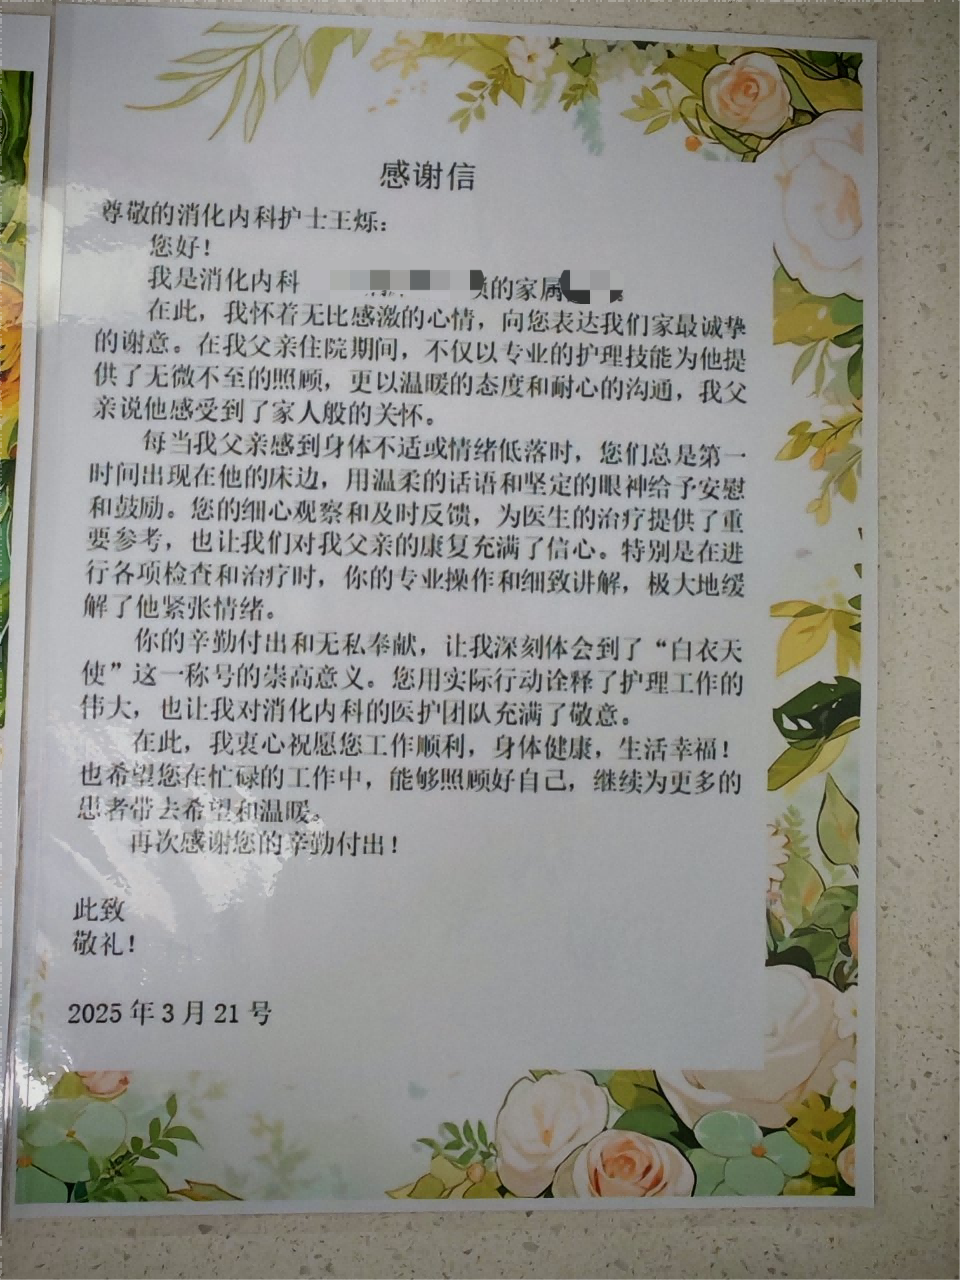 感谢信
尊敬的消化内科护士王烁：
您好！
我是消化内科 的家属
在此，我怀着无比感激的心情，向您表达我们家最诚挚
的谢意。在我父亲住院期间，不仅以专业的护理技能为他提
供了无微不至的照顾，更以温暖的态度和耐心的沟通，我父
亲说他感受到了家人般的关怀。
每当我父亲感到身体不适或情绪低落时，您们总是第一
时间出现在他的床边，用温柔的话语和坚定的眼神给予安慰
和鼓励。您的细心观察和及时反馈，为医生的治疗提供了重
要参考，也让我们对我父亲的康复充满了信心。特别是在进
行各项检查和治疗时，你的专业操作和细致讲解，极大地缓
解了他紧张情绪。
你的辛勤付出和无私奉献，让我深刻体会到了“白衣天
使”这一称号的崇高意义。您用实际行动诠释了护理工作的
伟大，也让我对消化内科的医护团队充满了敬意。
在此，我衷心祝愿您工作顺利，身体健康，生活幸福！
也希望您在忙碌的工作中，能够照顾好自己，继续为更多的
患者带去希望和温暖。
再次感谢您的辛勤付出！
此致
敬礼！
2025 年 3 月 21 号